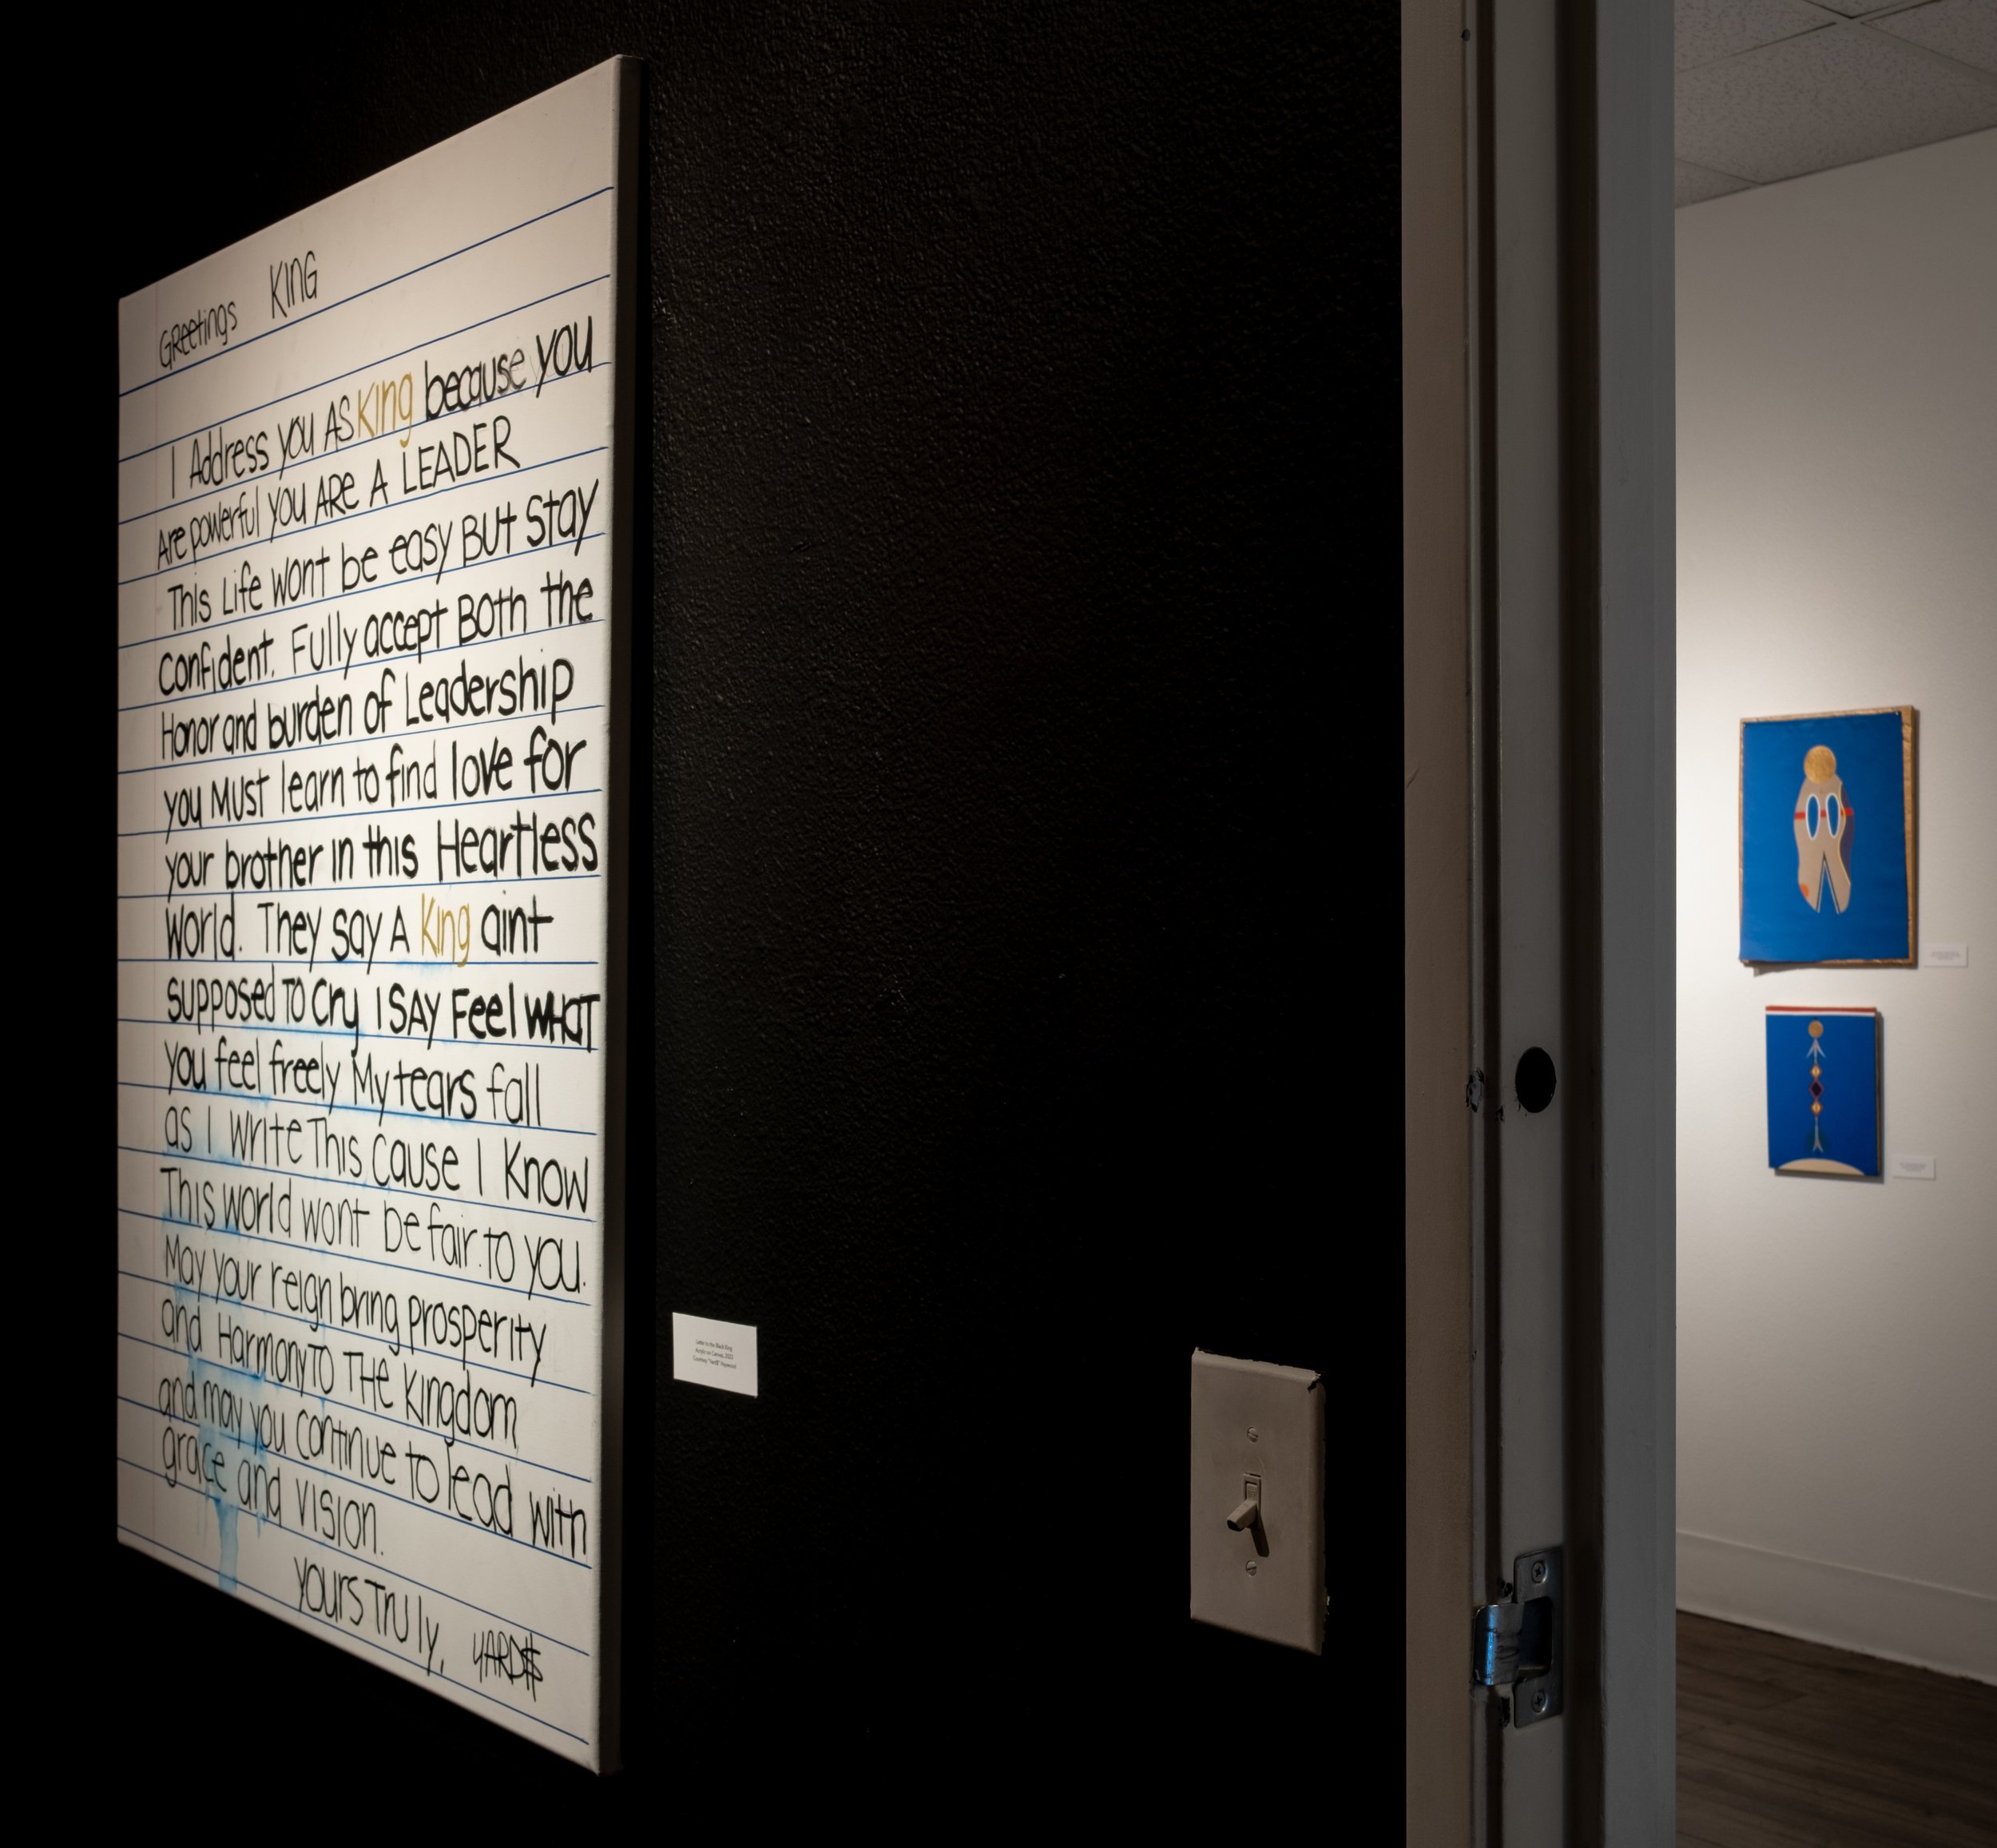 Greetings KING
I Address you AS King because you
Are powerful you ARe A LEADER
This Life wont be easy BUt Stay
Confident. Fully accept BOth the
Honor and burden of Leadership
you MUst learn to find love for
your brother in this Heartless
World. They say A King aint
supposed TO Cry I SAY Feel WHAT
you feel freely My tears fall
as I WriteThis Cause I Know
This world wont be fair to you.
May your reign bring prosperity
and Harmony TO THe Kingdom
and may you continue to lead with
grace and vision.
yours Truly, YARD$
Letter to the Black King
Acrylic on Canvas, 2023